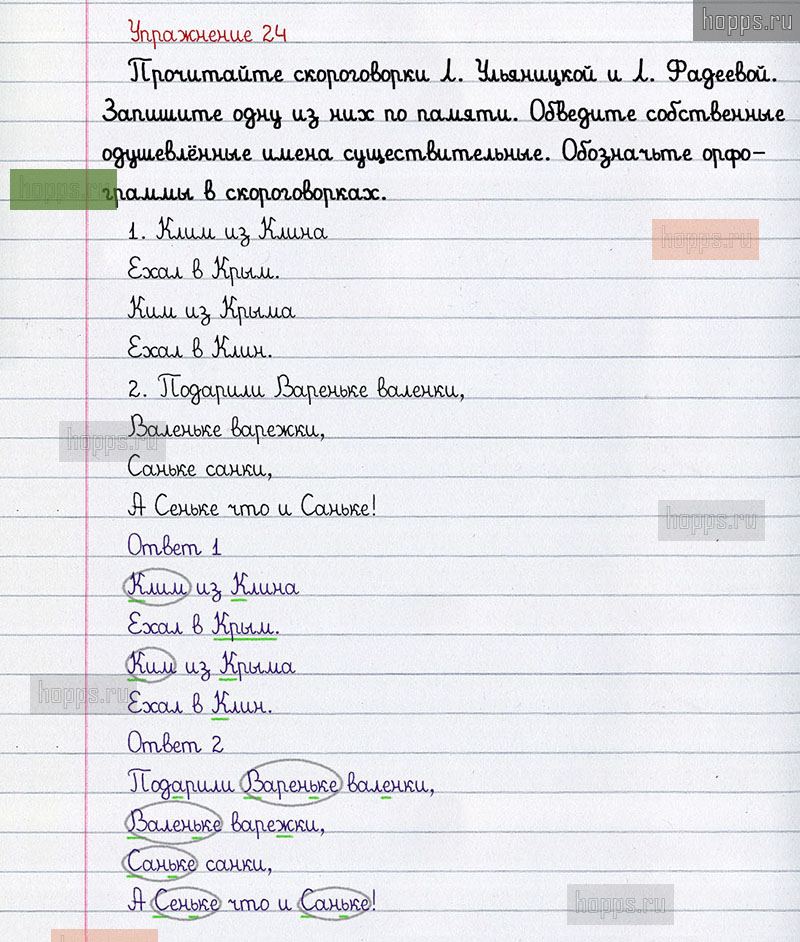 hopps.ru
Упражнение 24
Прочитайте скороговорки Л. Ульяницкой и Л. Фадеевой.
Запишите одну из них по памяти. Обведите собственные
одушевлённые имена существительные. Обозначьте орфо-
граммы в скороговорках.
hopps.ru
1. Клим из Клина
hopps.ru
Ехал в Крым.
Ким из Крыма
Ехал в Клин.
2. Подарили Вареньке валенки,
Валеньке варежки,
hopps.ru
Саньке санки,
А Сеньке что и Саньке!
hopps.ru
Ответ 1
Клим из Клина
Ехал в Крым.
Ким из Крыма
hopps.ru
Ехал в Клин.
Ответ 2
Подарили Вареньке валенки,
Валеньке варежки,
Саньке санки,
А Сеньке что и Саньке!
hopps.ru